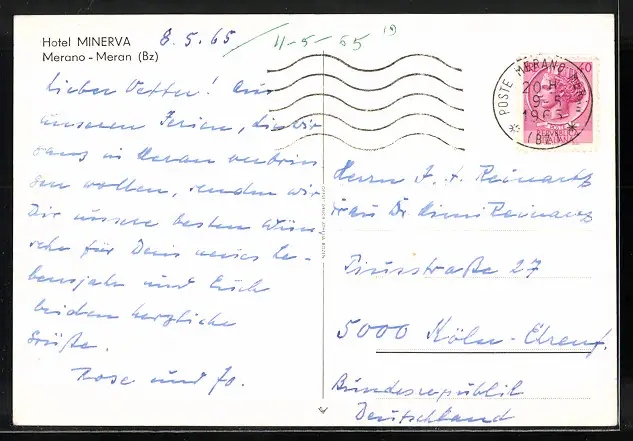 Hotel MINERVA
Merano - Meran (Bz)
8.5.65
11-5-65
Lieber Vetter! Aus
unseren Ferien, die wir
ganz in Meran verbrin
gen wollen, senden wir
Dir unsere besten Wün-
sche für Dein neues Le-
bensjahr und Euch
beiden herzliche
Grüße.
Rose und Jo.
POSTE MERANO
20-H
9-5
196
(BZ)
Herrn J. A. Reinartz
Frau Dr. Mimi Reinartz
Piusstraße 27
5000 Köln-Ehrenf.
Bundesrepublik
Deutschland